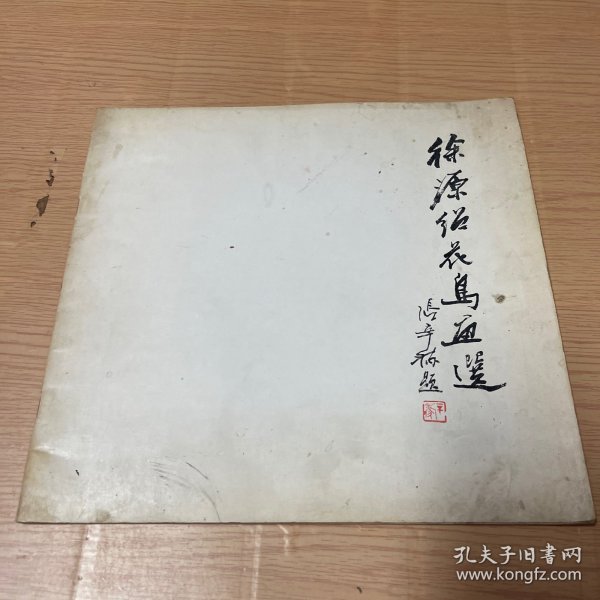 徐源绍花鸟画選
张辛稼题
孔夫子旧书网
www.kongfz.com